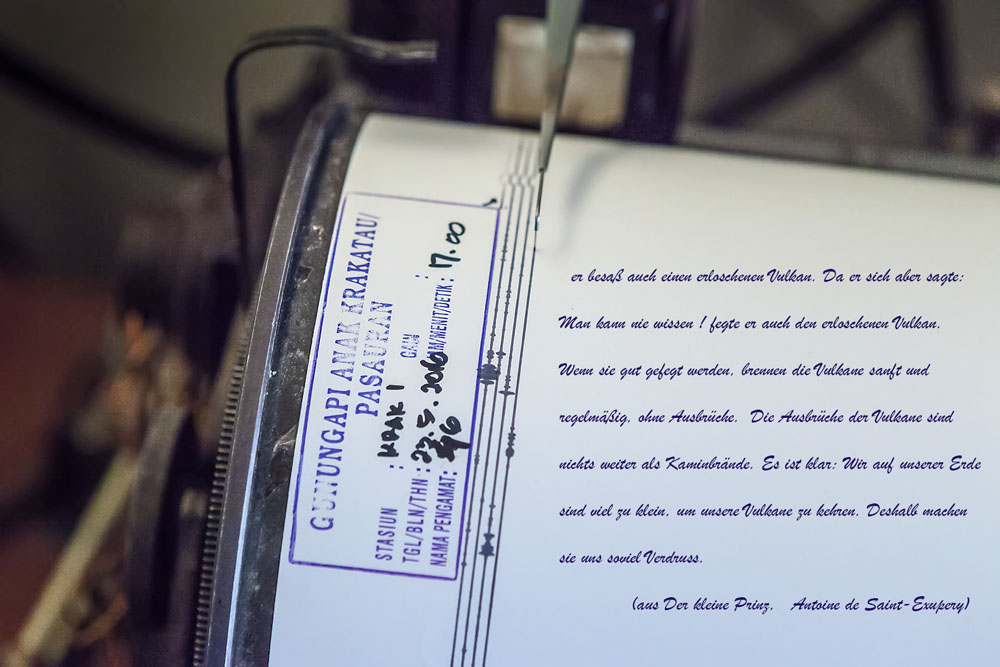 GUNUNGAPI ANAK KRAKATAU/
PASAURAN
GAIN :
STASIUN : KRAK 1
TGL/BLN/THN : 23.5.2016 JAM/MENIT/DETIK : 17.00
NAMA PENGAMAT :
er besaß auch einen erloschenen Vulkan. Da er sich aber sagte:
Man kann nie wissen ! fegte er auch den erloschenen Vulkan.
Wenn sie gut gefegt werden, brennen die Vulkane sanft und
regelmäßig, ohne Ausbrüche. Die Ausbrüche der Vulkane sind
nichts weiter als Kaminbrände. Es ist klar: Wir auf unserer Erde
sind viel zu klein, um unsere Vulkane zu kehren. Deshalb machen
sie uns soviel Verdruss.
(aus Der kleine Prinz, Antoine de Saint-Exupery)